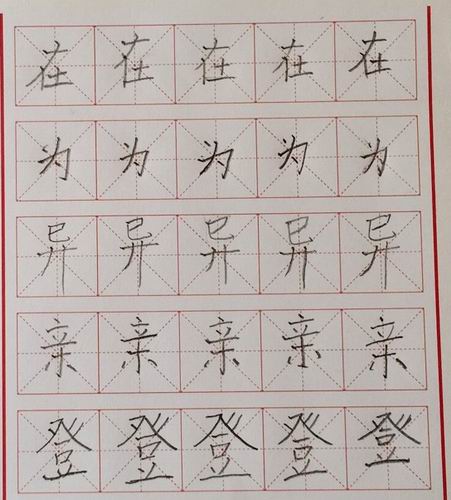 在在在在在
为为为为为
异异异异异
亲亲亲亲亲
登登登登登